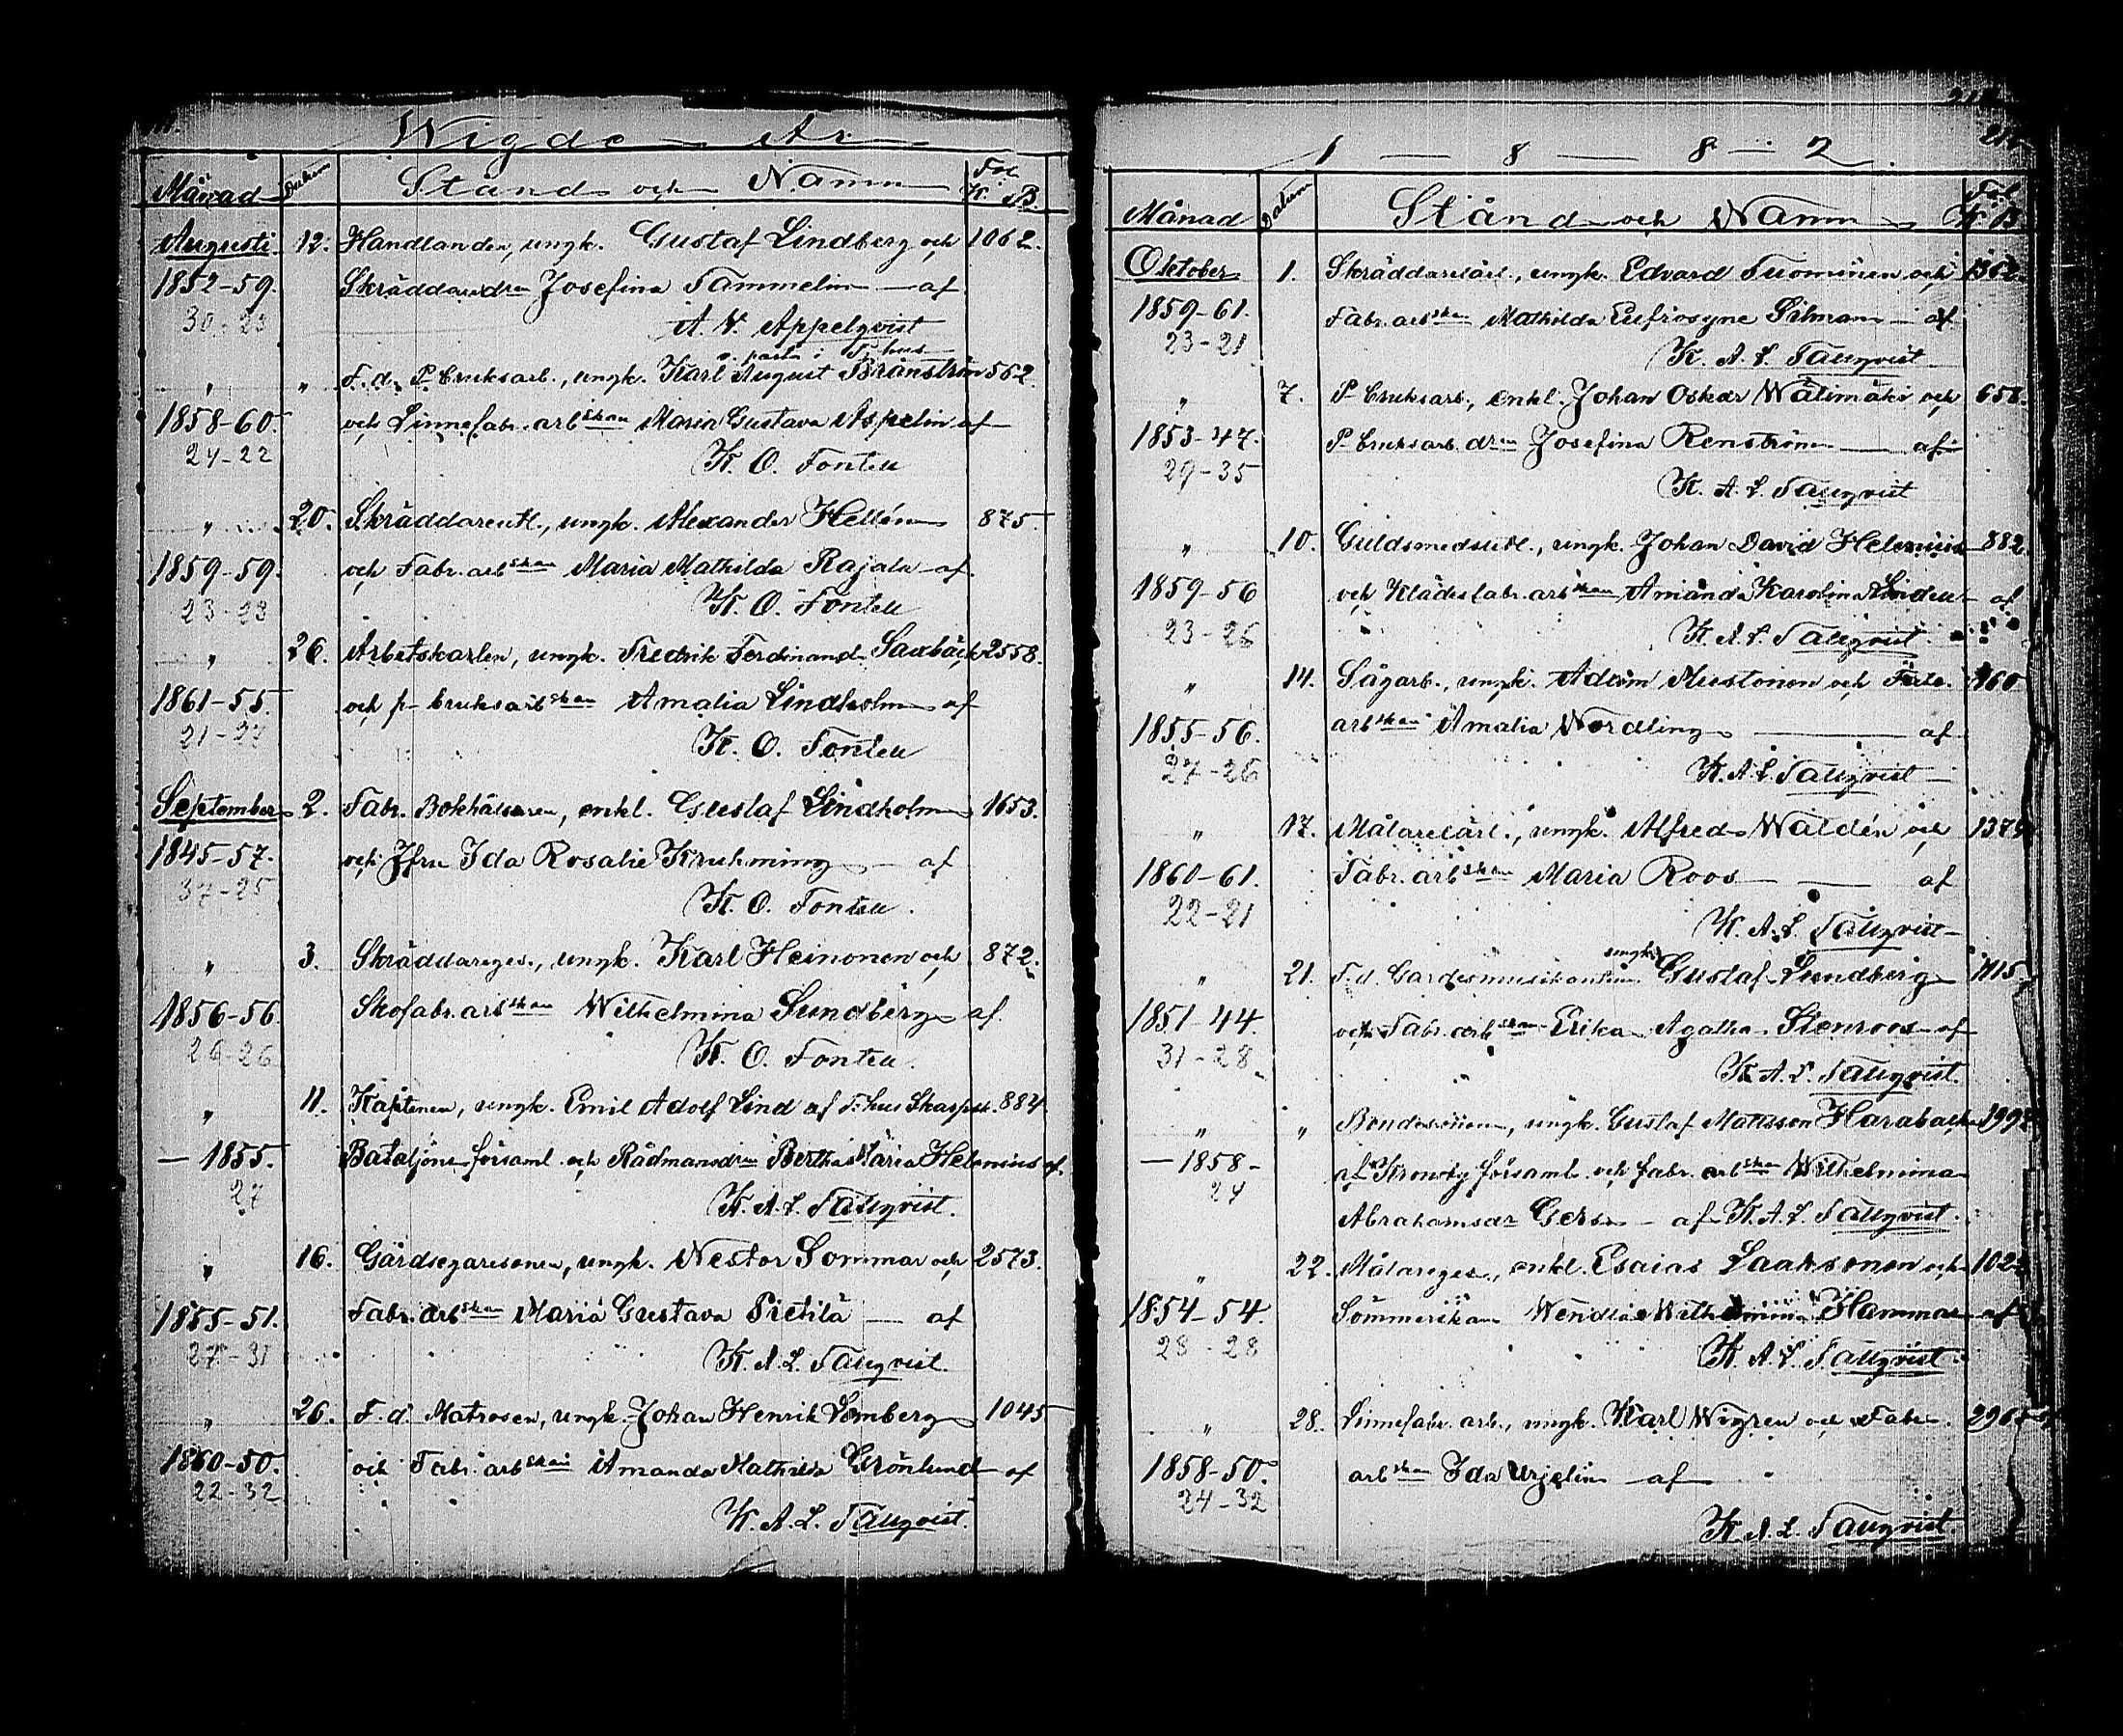 Wigde År
Månad Datum Stånd och Namn Fol. K. B.
Augusti 12. Handlanden, ungk. Gustaf Lindberg och 1062.
1852-59. Skräddaredrn Josefina Tammelin — af
30-23 A. N. Appelqvist
F. hus
" " F. d. P bruksarb., ungk. Karl August Brånström 562.
1858-60. och Linnefabr. arbskan Maria Gustava Aspelin af
24-22 K. O. Fontell
" 20. Skräddareutl., ungk. Alexander Hellén 875.
1859-59. och Fabr. arbskan Maria Mathilda Rajala — af
23-23 K. O. Fontell
" 26. Arbetskarlen, ungk. Fredrik Ferdinand Saxbäck 2558.
1861-55. och p-bruksarbskan Amalia Lindholm af
21-27 K. O. Fontell
September 2. Fabr. Bokhållaren, enkl. Gustaf Lindholm 1653.
1845-57. och Jfru Ida Rosalie Kruhming — af
37-25 K. O. Fontell.
" 3. Skräddareges., ungk. Karl Heinonen och 872.
1856-56. Skofabr. arbskan Wilhelmina Sundberg af
26-26 K. O. Fontell.
" 11. Kaptenen, ungk. Emil Adolf Lind af F. hus Skarpsk. 884.
— 1855. Bataljons församl. och Rådmansdrn Bertha Maria Helenius af
27 K. A. L. Tallqvist.
" 16. Gårdsegaresonen, ungk. Nestor Sommar och 2573.
1855-51. Fabr. arbskan Maria Gustava Pietilä — af
27-31 K. A. L. Tallqvist.
" 26. F. d. Matrosen, ungk. Johan Henrik Lomberg 1045
1860-50. och Fabr. arbskan Amanda Mathilda Grönlund af
22-32 K. A. L. Tallqvist.
1 — 8 — 8 — 2.
Månad Datum Stånd och Namn Fol. K B
Oktober 1. Skräddarelärl., ungk. Edvard Tuominen och 1362
1859-61. Fabr. arbskan Mathilda Eufrosyne Silman — af
23-21 K. A. L. Tallqvist
" 7. P bruksarb., enkl. Johan Oskar Wälimäki och 658.
1853-47. P. bruksarb. drn Josefina Renström — af
29-35 K. A. L. Tallqvist
" 10. Guldsmedsutl., ungk. Johan David Helenius 882
1859-56 och Klädesfabr. arbskan Amanda Karolina Lindell af
23-26 K. A. L. Tallqvist.
" 14. Sågarb., ungk. Adam Mustonen och Fabr. 960
1855-56. arbskan Amalia Nordling — af
27-26 K. A. L. Tallqvist
" 17. Målarelärl., ungk. Alfred Waldén och 1375
1860-61. Fabr. arbskan Maria Roos — — af
22-21 K. A. L. Tallqvist
ungk.
" 21. F. d. Gardesmusikanten Gustaf Lundberg 1115
1851-44. och Fabr. arbskan Erika Agatha Stenroos af
31-28 K. A. L. Tallqvist.
" " Bondesonen, ungk. Gustaf Mattsson Harabacka 1992
— 1858- af Kronoby församl. och fabr. arbskan Wilhelmina
24 Abrahamsdr Gers — af K. A. L. Tallqvist.
" 22. Målareges., enkl. Esaias Laaksonen och 1022
1854-54. Sömmerskan Wendla Wilhelmina Hammar af
28-28 K. A. L. Tallqvist.
" 28. Linnefabr. arb., ungk. Karl Wigren och Fabr. 296
1858-50. arbskan Ida Urjelin — af
24-32 K. A. L. Tallqvist.